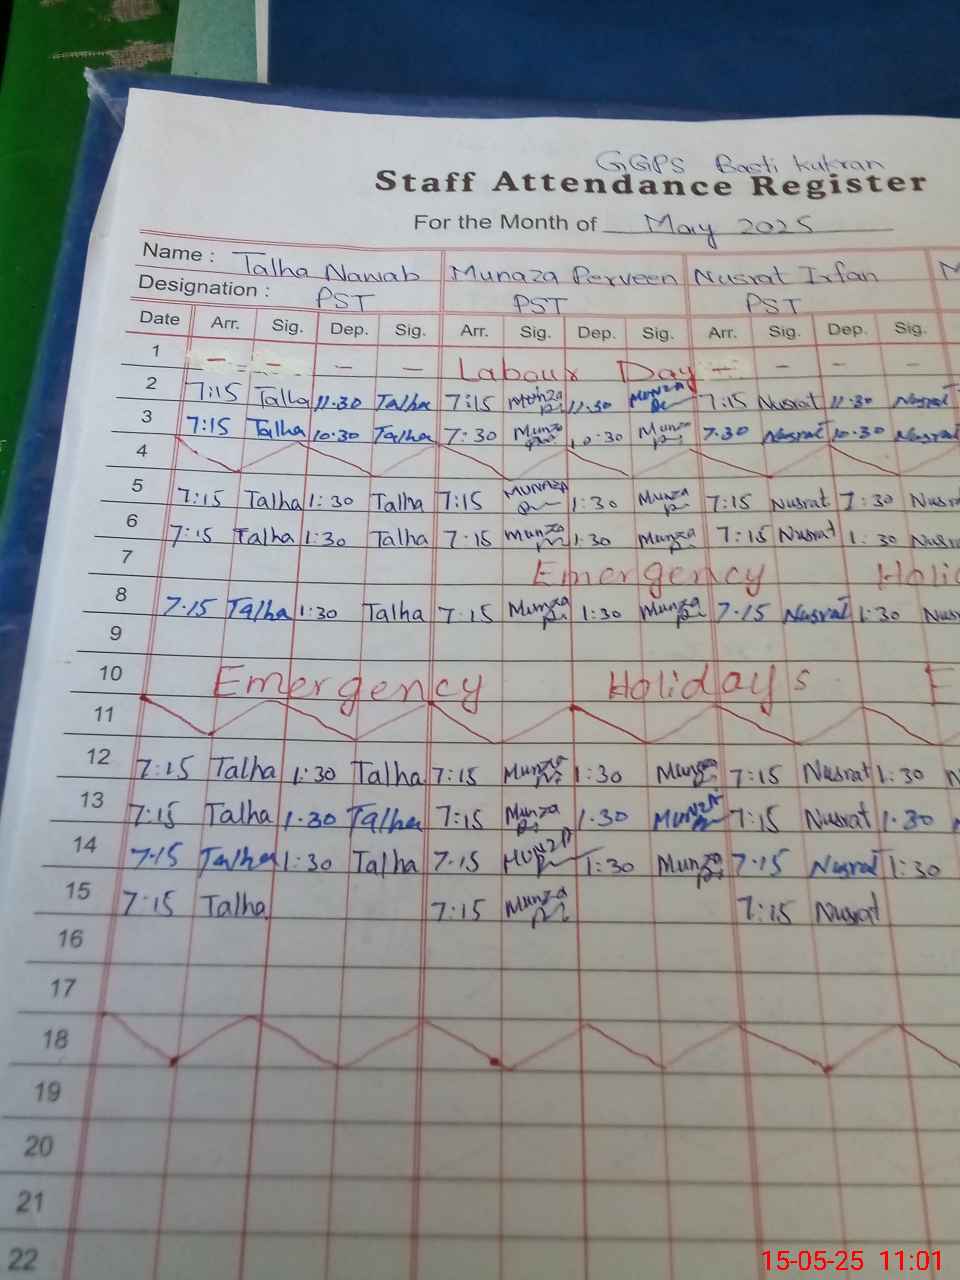 GGPS Basti Kukran
Staff Attendance Register
For the Month of May 2025
Name : Talha Nawab Munaza Perveen Nusrat Irfan M
Designation : PST PST PST
Date Arr. Sig. Dep. Sig. Arr. Sig. Dep. Sig. Arr. Sig. Dep. Sig.
1 - - - - Labour Day - - - -
2 7:15 Talha 11.30 Talha 7:15 Munza 11.30 MUNZA 7:15 Nusrat 11.30 Nusrat
3 7:15 Talha 10.30 Talha 7:30 Munza 10.30 Munza 7.30 Nusrat 10.30 Nusrat
4
5 7:15 Talha 1:30 Talha 7:15 MUNAZA 1:30 Munza 7:15 Nusrat 7:30 Nusra
6 7:15 Talha 1:30 Talha 7.15 Munza 1:30 Munza 7:15 Nusrat 1:30 Nusra
7 Emergency Holid
8 7.15 Talha 1:30 Talha 7.15 Munza 1:30 Munza 7.15 Nusrat 1:30 Nusr
9
10 Emergency Holidays E
11
12 7:15 Talha 1:30 Talha 7:15 Munza 1:30 Munza 7:15 Nusrat 1:30 N
13 7:15 Talha 1.30 Talha 7:15 Munza 1.30 MUNZA 7:15 Nusrat 1.30
14 7.15 Talha 1:30 Talha 7.15 MUNZA 1:30 Munza 7.15 Nusrat 1:30
15 7:15 Talha 7:15 Munza 7:15 Nusrat
16
17
18
19
20
21
22
15-05-25 11:01